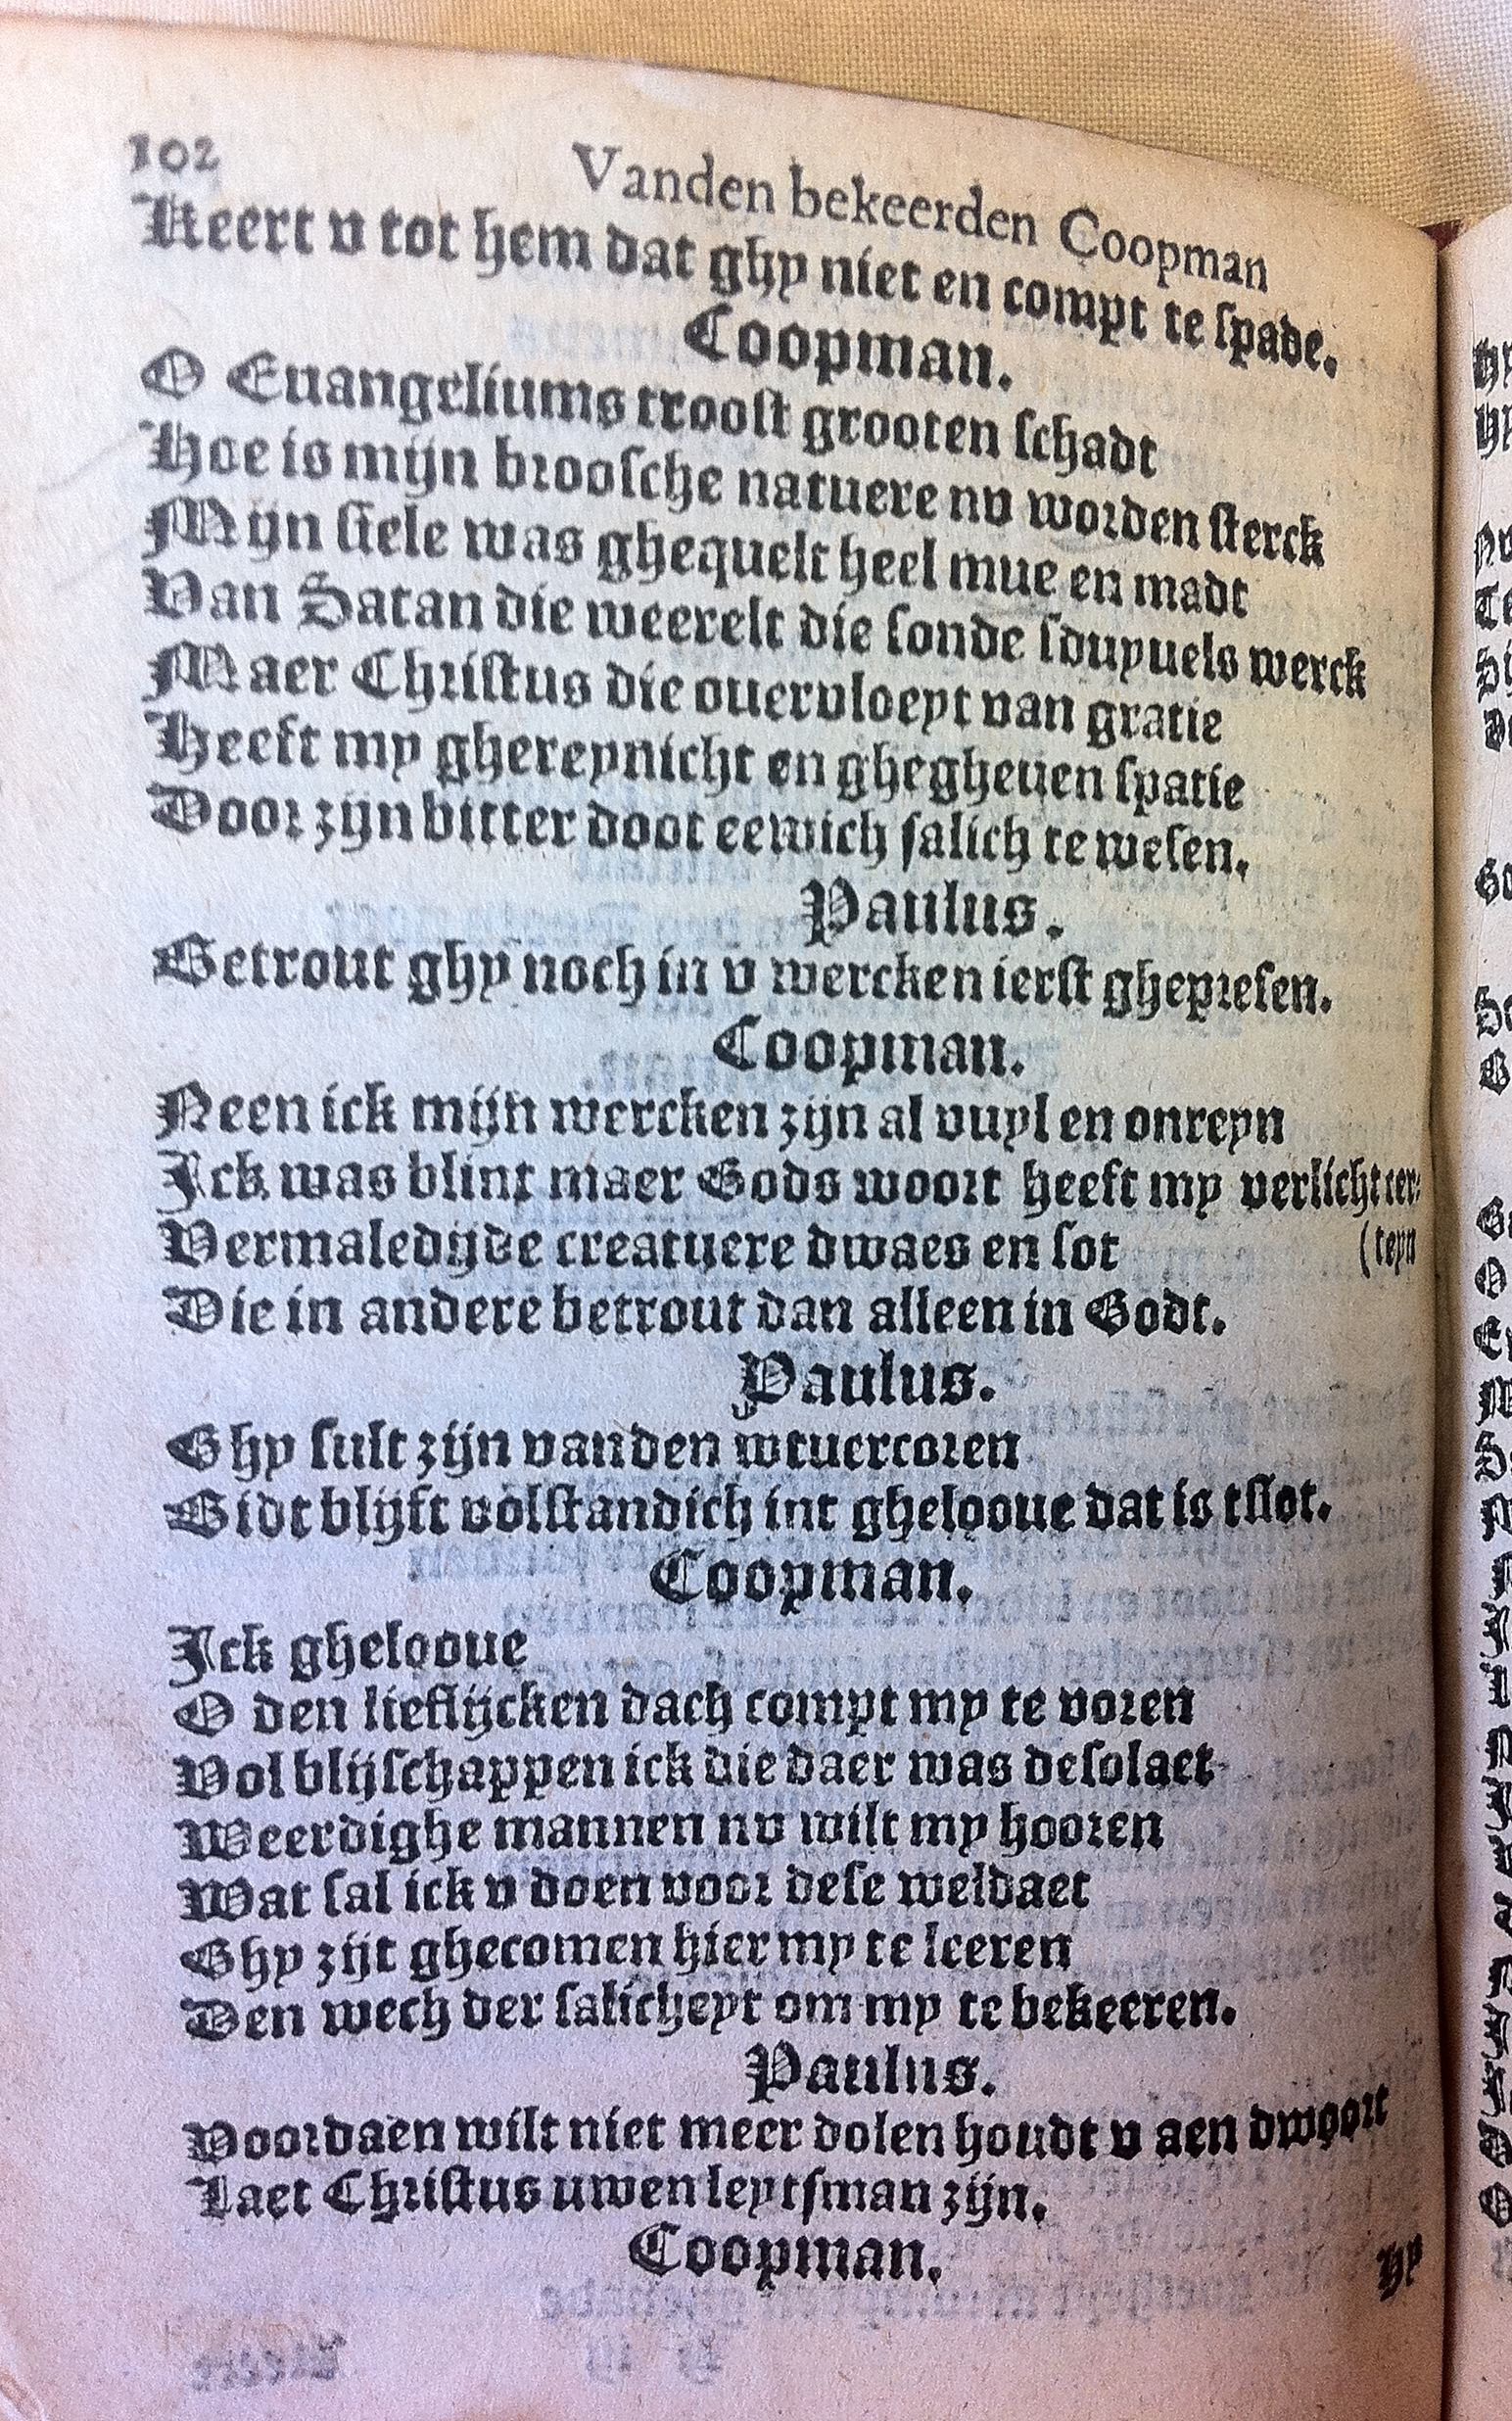 102
Vanden bekeerden Coopman
Keert v tot hem dat ghy niet en compt te spade.
Coopman.
O Euangeliums troost grooten schadt
Hoe is mijn broosche natuere nv worden sterck
Mijn siele was ghequelt heel mue en madt
Van Satan die weerelt die sonde sduyuels werck
Maer Christus die ouervloeyt van gratie
Heeft my ghereynicht en ghegheuen spatie
Door zijn bitter doot eewich salich te wesen.
Paulus.
Betrout ghy noch in v wercken ierst ghepresen.
Coopman.
Neen ick mijn wercken zijn al vuyl en onreyn
Ick was blint maer Gods woort heeft my verlicht cer-
Vermaledijde creatuere dwaes en sot (teyn
Die in andere betrout dan alleen in Godt.
Paulus.
Ghy sult zijn vanden wtuercoren
Bidt blijft volstandich int ghelooue dat is tslot.
Coopman.
Ick ghelooue
O den lieflijcken dach compt my te voren
Vol blijschappen ick die daer was desolaet
Weerdighe mannen nv wilt my hooren
Wat sal ick v doen voor dese weldaet
Ghy zijt ghecomen hier my te leeren
Den wech der salicheyt om my te bekeeren.
Paulus.
Voordaen wilt niet meer dolen houdt v aen dwoort
Laet Christus uwen leytsman zijn.
Coopman.
Hy